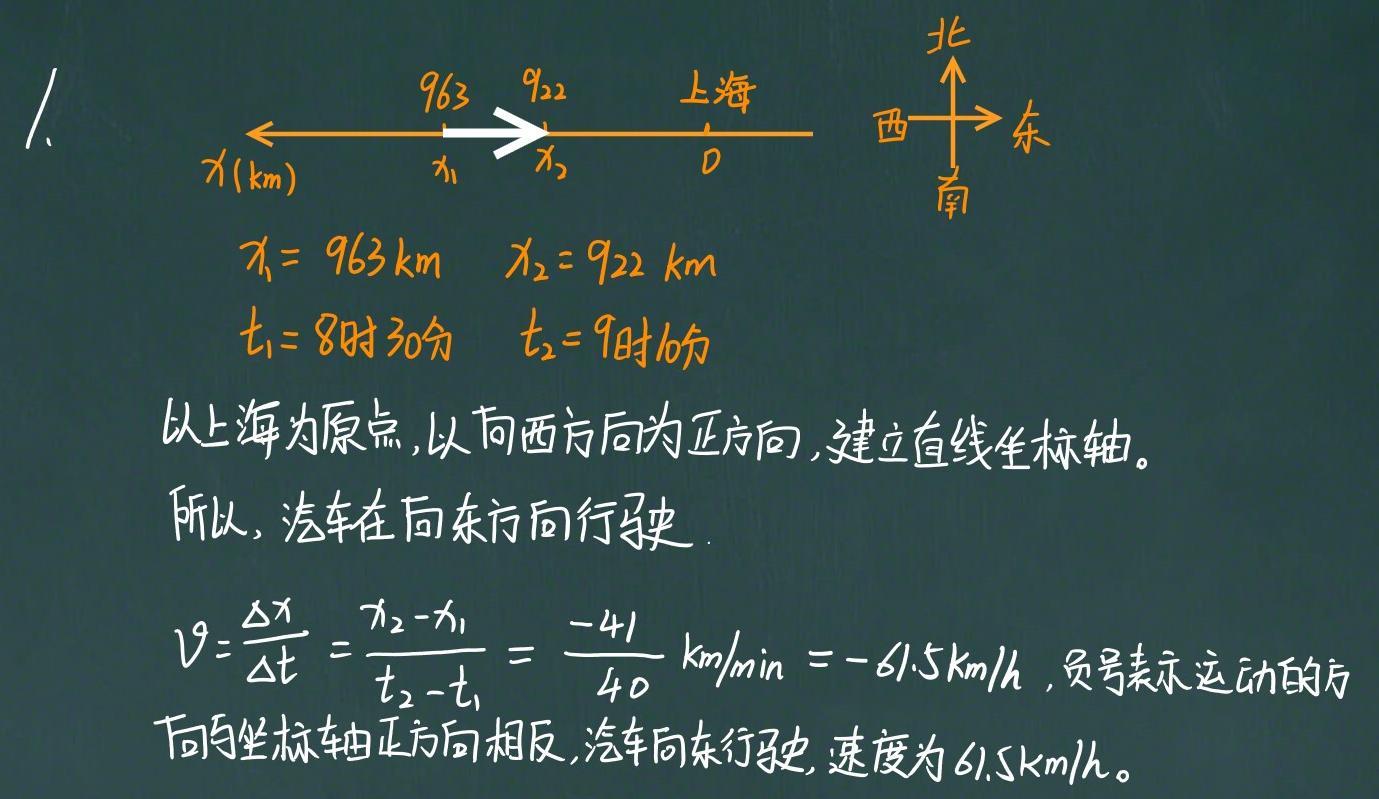 1.
963 922 上海
x(km) x₁ x₂ 0
北
西 东
南
x₁ = 963 km x₂ = 922 km
t₁ = 8时30分 t₂ = 9时10分
以上海为原点,以向西方向为正方向,建立直线坐标轴。
所以,汽车在向东方向行驶.
v = Δx/Δt = (x₂-x₁)/(t₂-t₁) = -41/40 km/min = -61.5km/h,负号表示运动的方
向与坐标轴正方向相反,汽车向东行驶,速度为61.5km/h。